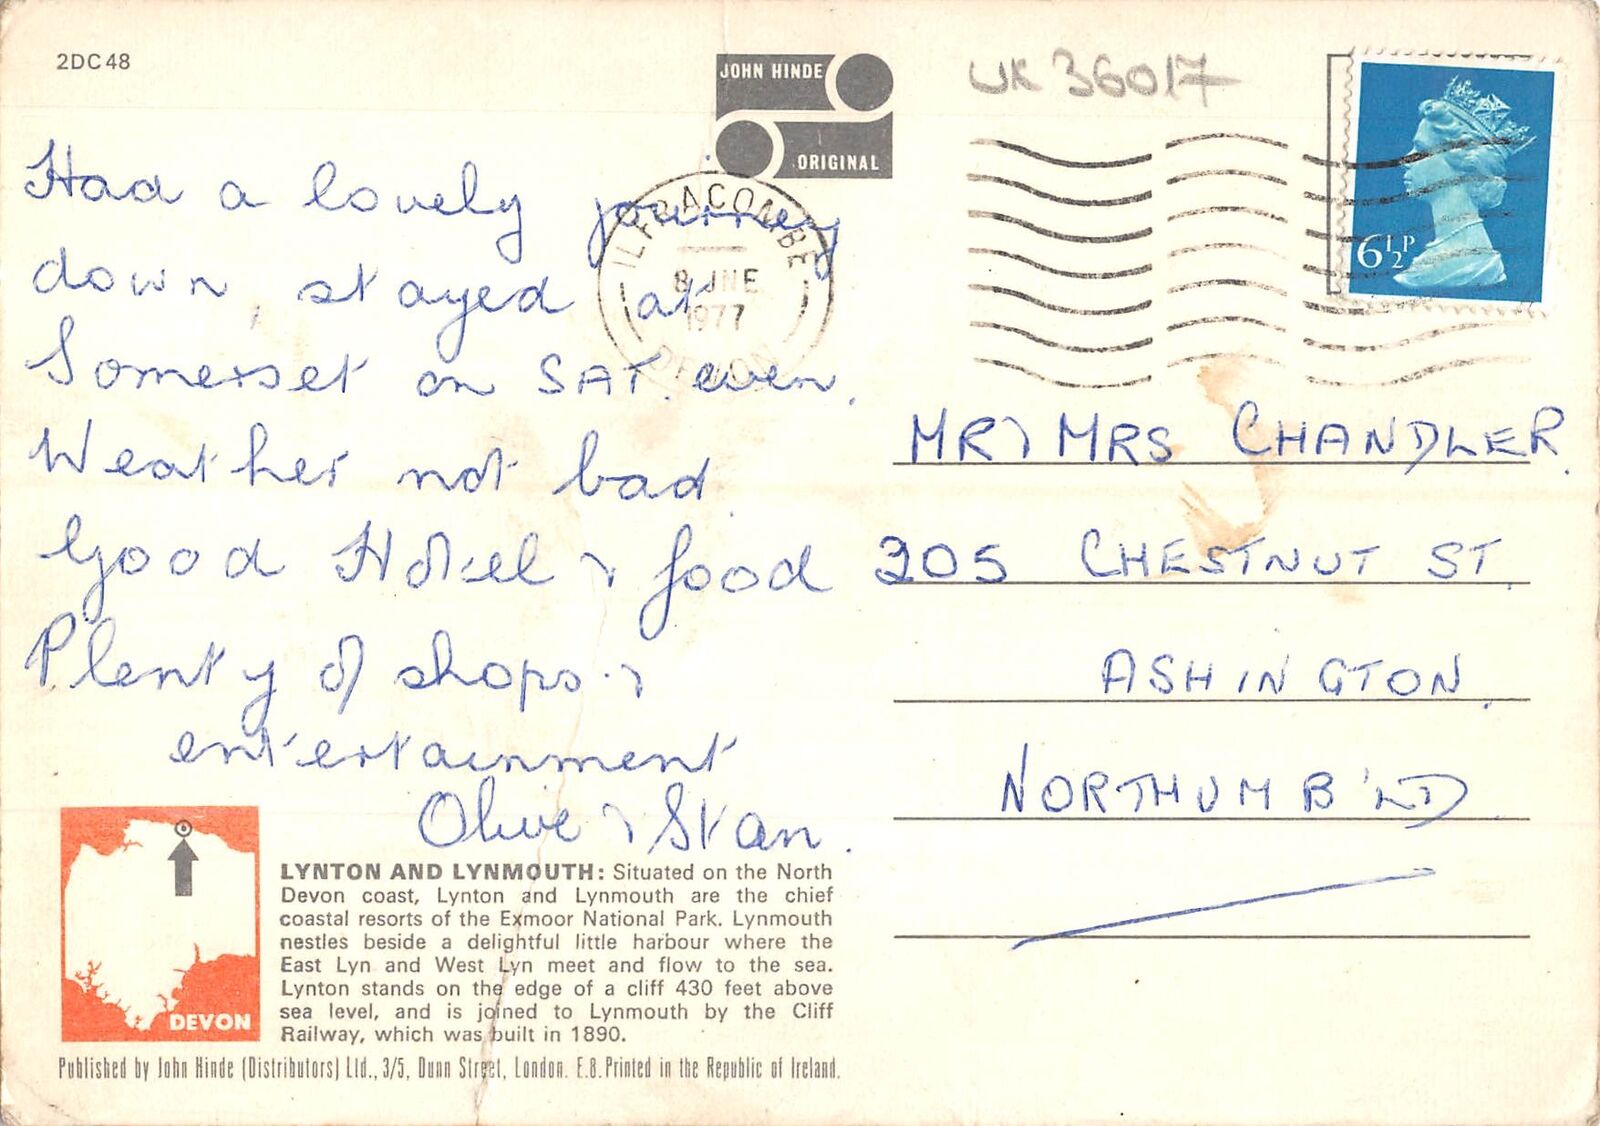 2DC48
JOHN HINDE
ORIGINAL
UK 36017
6½P
ILFRACOMBE
8 JNE
1977
DEVON
Had a lovely journey
down, stayed at
Somerset on SAT. even.
Weather not bad.
Good Hotel & food
Plenty of shops. &
entertainment
Olive & Stan.
MR & MRS CHANDLER.
205 CHESTNUT ST.
ASHINGTON.
NORTHUMB'LD
DEVON
LYNTON AND LYNMOUTH: Situated on the North
Devon coast, Lynton and Lynmouth are the chief
coastal resorts of the Exmoor National Park. Lynmouth
nestles beside a delightful little harbour where the
East Lyn and West Lyn meet and flow to the sea.
Lynton stands on the edge of a cliff 430 feet above
sea level, and is joined to Lynmouth by the Cliff
Railway, which was built in 1890.
Published by John Hinde (Distributors) Ltd., 3/5, Dunn Street, London. E.8. Printed in the Republic of Ireland.